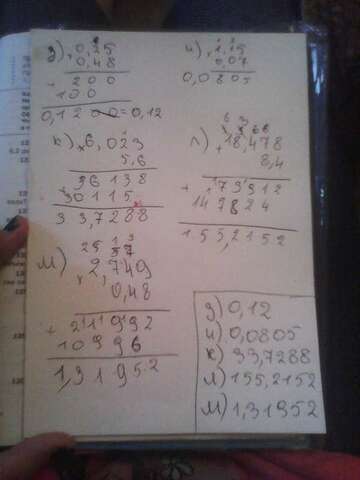 з) × 0,25
0,48
+ 200
100
0,1200=0,12
и) × 1,15
0,07
0,0805
к) × 6,023
5,6
+ 36138
30115
33,7288
л) × 18,478
8,4
+ 73912
147824
155,2152
м) × 2,749
0,48
+ 21992
10996
1,31952
з) 0,12
и) 0,0805
к) 33,7288
л) 155,2152
м) 1,31952